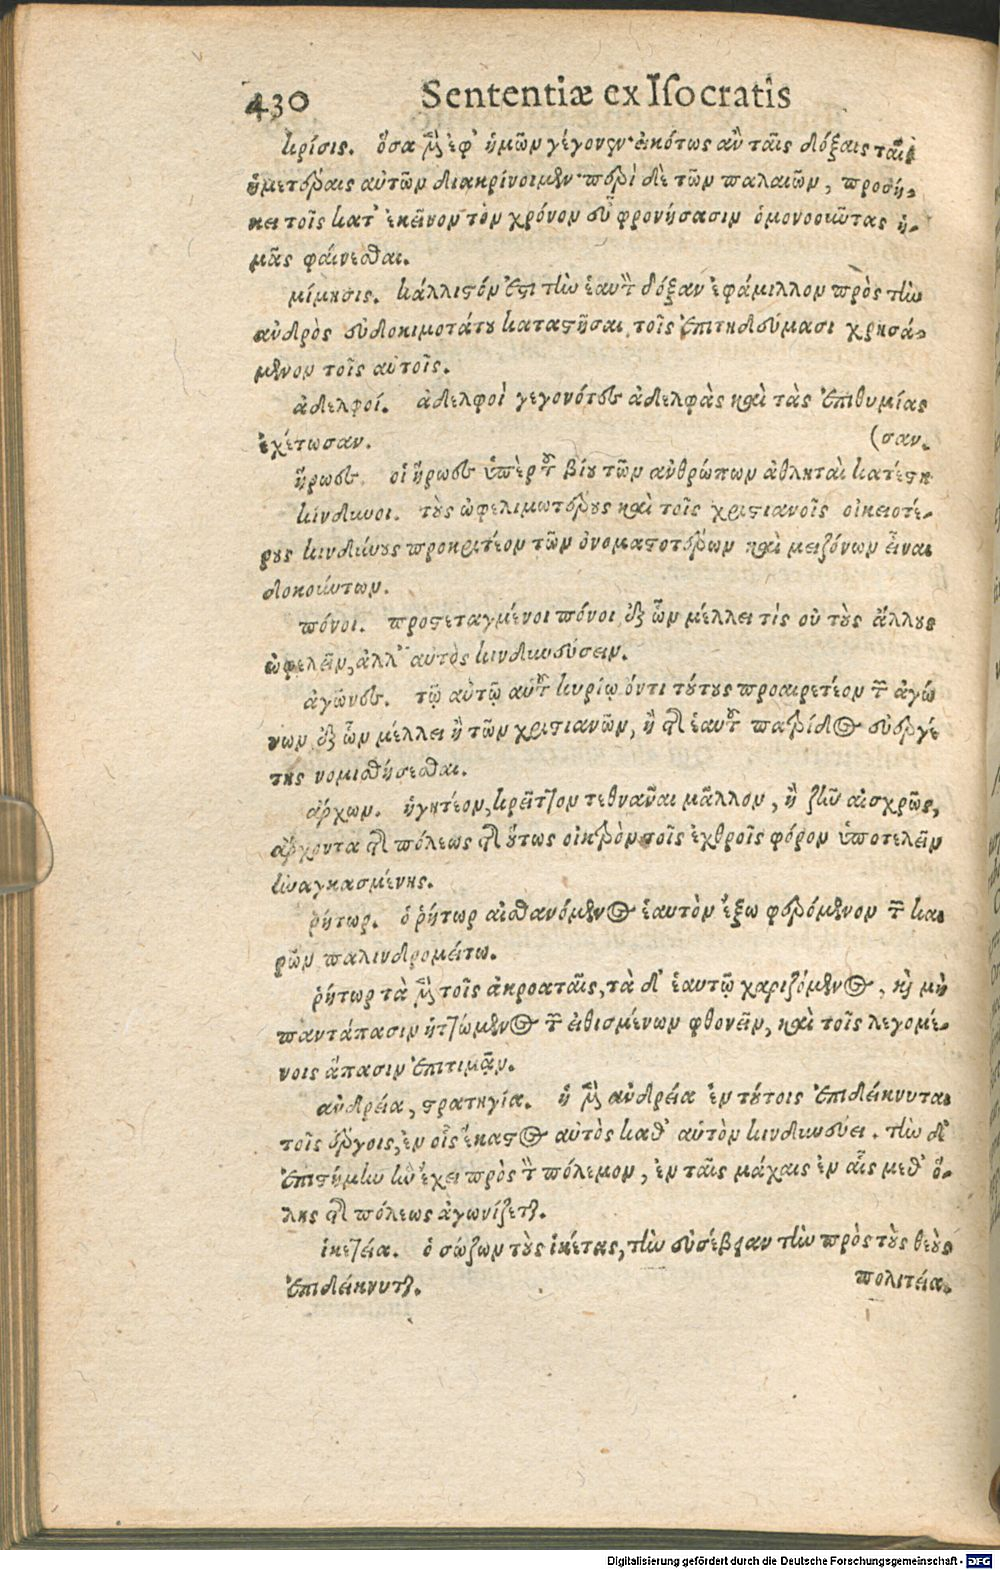 430 Sententiæ ex Isocratis
κρίσις. ὅσα μὲν ἐφ' ἡμῶν γέγονεν· εἰκότως ἂν ταῖς δόξαις ταῖς
ἡμετέραις αὐτῶν διακρίνοιμεν· περὶ δὲ τῶν παλαιῶν, προσή-
κει τοῖς κατ' ἐκεῖνον τὸν χρόνον εὖ φρονήσασιν ὁμονοοῦντας ἡ-
μᾶς φαίνεσθαι.
μίμησις. κάλλιστόν ἐστι τὴν ἑαυτοῦ δόξαν ἐφάμιλλον πρὸς τὴν
ἀνδρὸς εὐδοκιμοτάτου καταστῆσαι, τοῖς ἐπιτηδεύμασι χρησά-
μενον τοῖς αὐτοῖς.
ἀδελφοί. ἀδελφοὶ γεγονότες ἀδελφὰς καὶ τὰς ἐπιθυμίας
ἐχέτωσαν. (σαν.
ἥρωες. οἱ ἥρωες ὑπὲρ τοῦ βίου τῶν ἀνθρώπων ἀθληταὶ κατέστη
κίνδυνοι. τοὺς ὠφελιμωτέρους καὶ τοῖς χριστιανοῖς οἰκειοτέ-
ρους κινδύνους προκριτέον τῶν ὀνομαστοτέρων καὶ μειζόνων εἶναι
δοκούντων.
πόνοι. προστεταγμένοι πόνοι, ἐξ ὧν μέλλει τὶς οὐ τοὺς ἄλλους
ὠφελεῖν, ἀλλ' αὐτὸς κινδυνεύσειν.
ἀγῶνες. τῷ αὐτῷ αὑτοῦ κυρίῳ ὄντι τούτους προαιρετέον τῶν ἀγώ
νων, ἐξ ὧν μέλλει ἢ τῶν χριστιανῶν, ἢ τῆς ἑαυτοῦ πατρίδος εὐεργέ
της νομισθήσεσθαι.
ἄρχων. ἡγητέον, κρεῖττον τεθνᾶναι μᾶλλον, ἢ ζῆν αἰσχρῶς,
ἄρχοντα τῆς πόλεως τῆς οὕτως οἰκτρὸν τοῖς ἐχθροῖς φόρον ὑποτελεῖν
ἠναγκασμένης.
ῥήτωρ. ὁ ῥήτωρ αἰσθανόμενος ἑαυτὸν ἔξω φερόμενον τῶν και
ρῶν παλινδρομείτω.
ῥήτωρ τὰ μὲν τοῖς ἀκροαταῖς, τὰ δ' ἑαυτῷ χαριζόμενος, καὶ μὴ
παντάπασιν ἡττώμενος τῶν εἰθισμένων φθονεῖν, καὶ τοῖς λεγομέ-
νοις ἅπασιν ἐπιτιμᾷν.
ἀνδρεία, στρατηγία. ἡ μὲν ἀνδρεία ἐν τούτοις ἐπιδείκνυται
τοῖς ἔργοις, ἐν οἷς ἕκαστος αὐτὸς καθ' αὑτὸν κινδυνεύει. τὴν δ'
ἐπιστήμην ἣν ἔχει πρὸς τὸν πόλεμον, ἐν ταῖς μάχαις ἐν αἷς μεθ' ὅ-
λης τῆς πόλεως ἀγωνίζεται.
ἱκετεία. ὁ σώζων τοὺς ἱκέτας, τὴν εὐσέβειαν τὴν πρὸς τοὺς θεοὺς
ἐπιδείκνυται. πολιτεία.
Digitalisierung gefördert durch die Deutsche Forschungsgemeinschaft - DFG